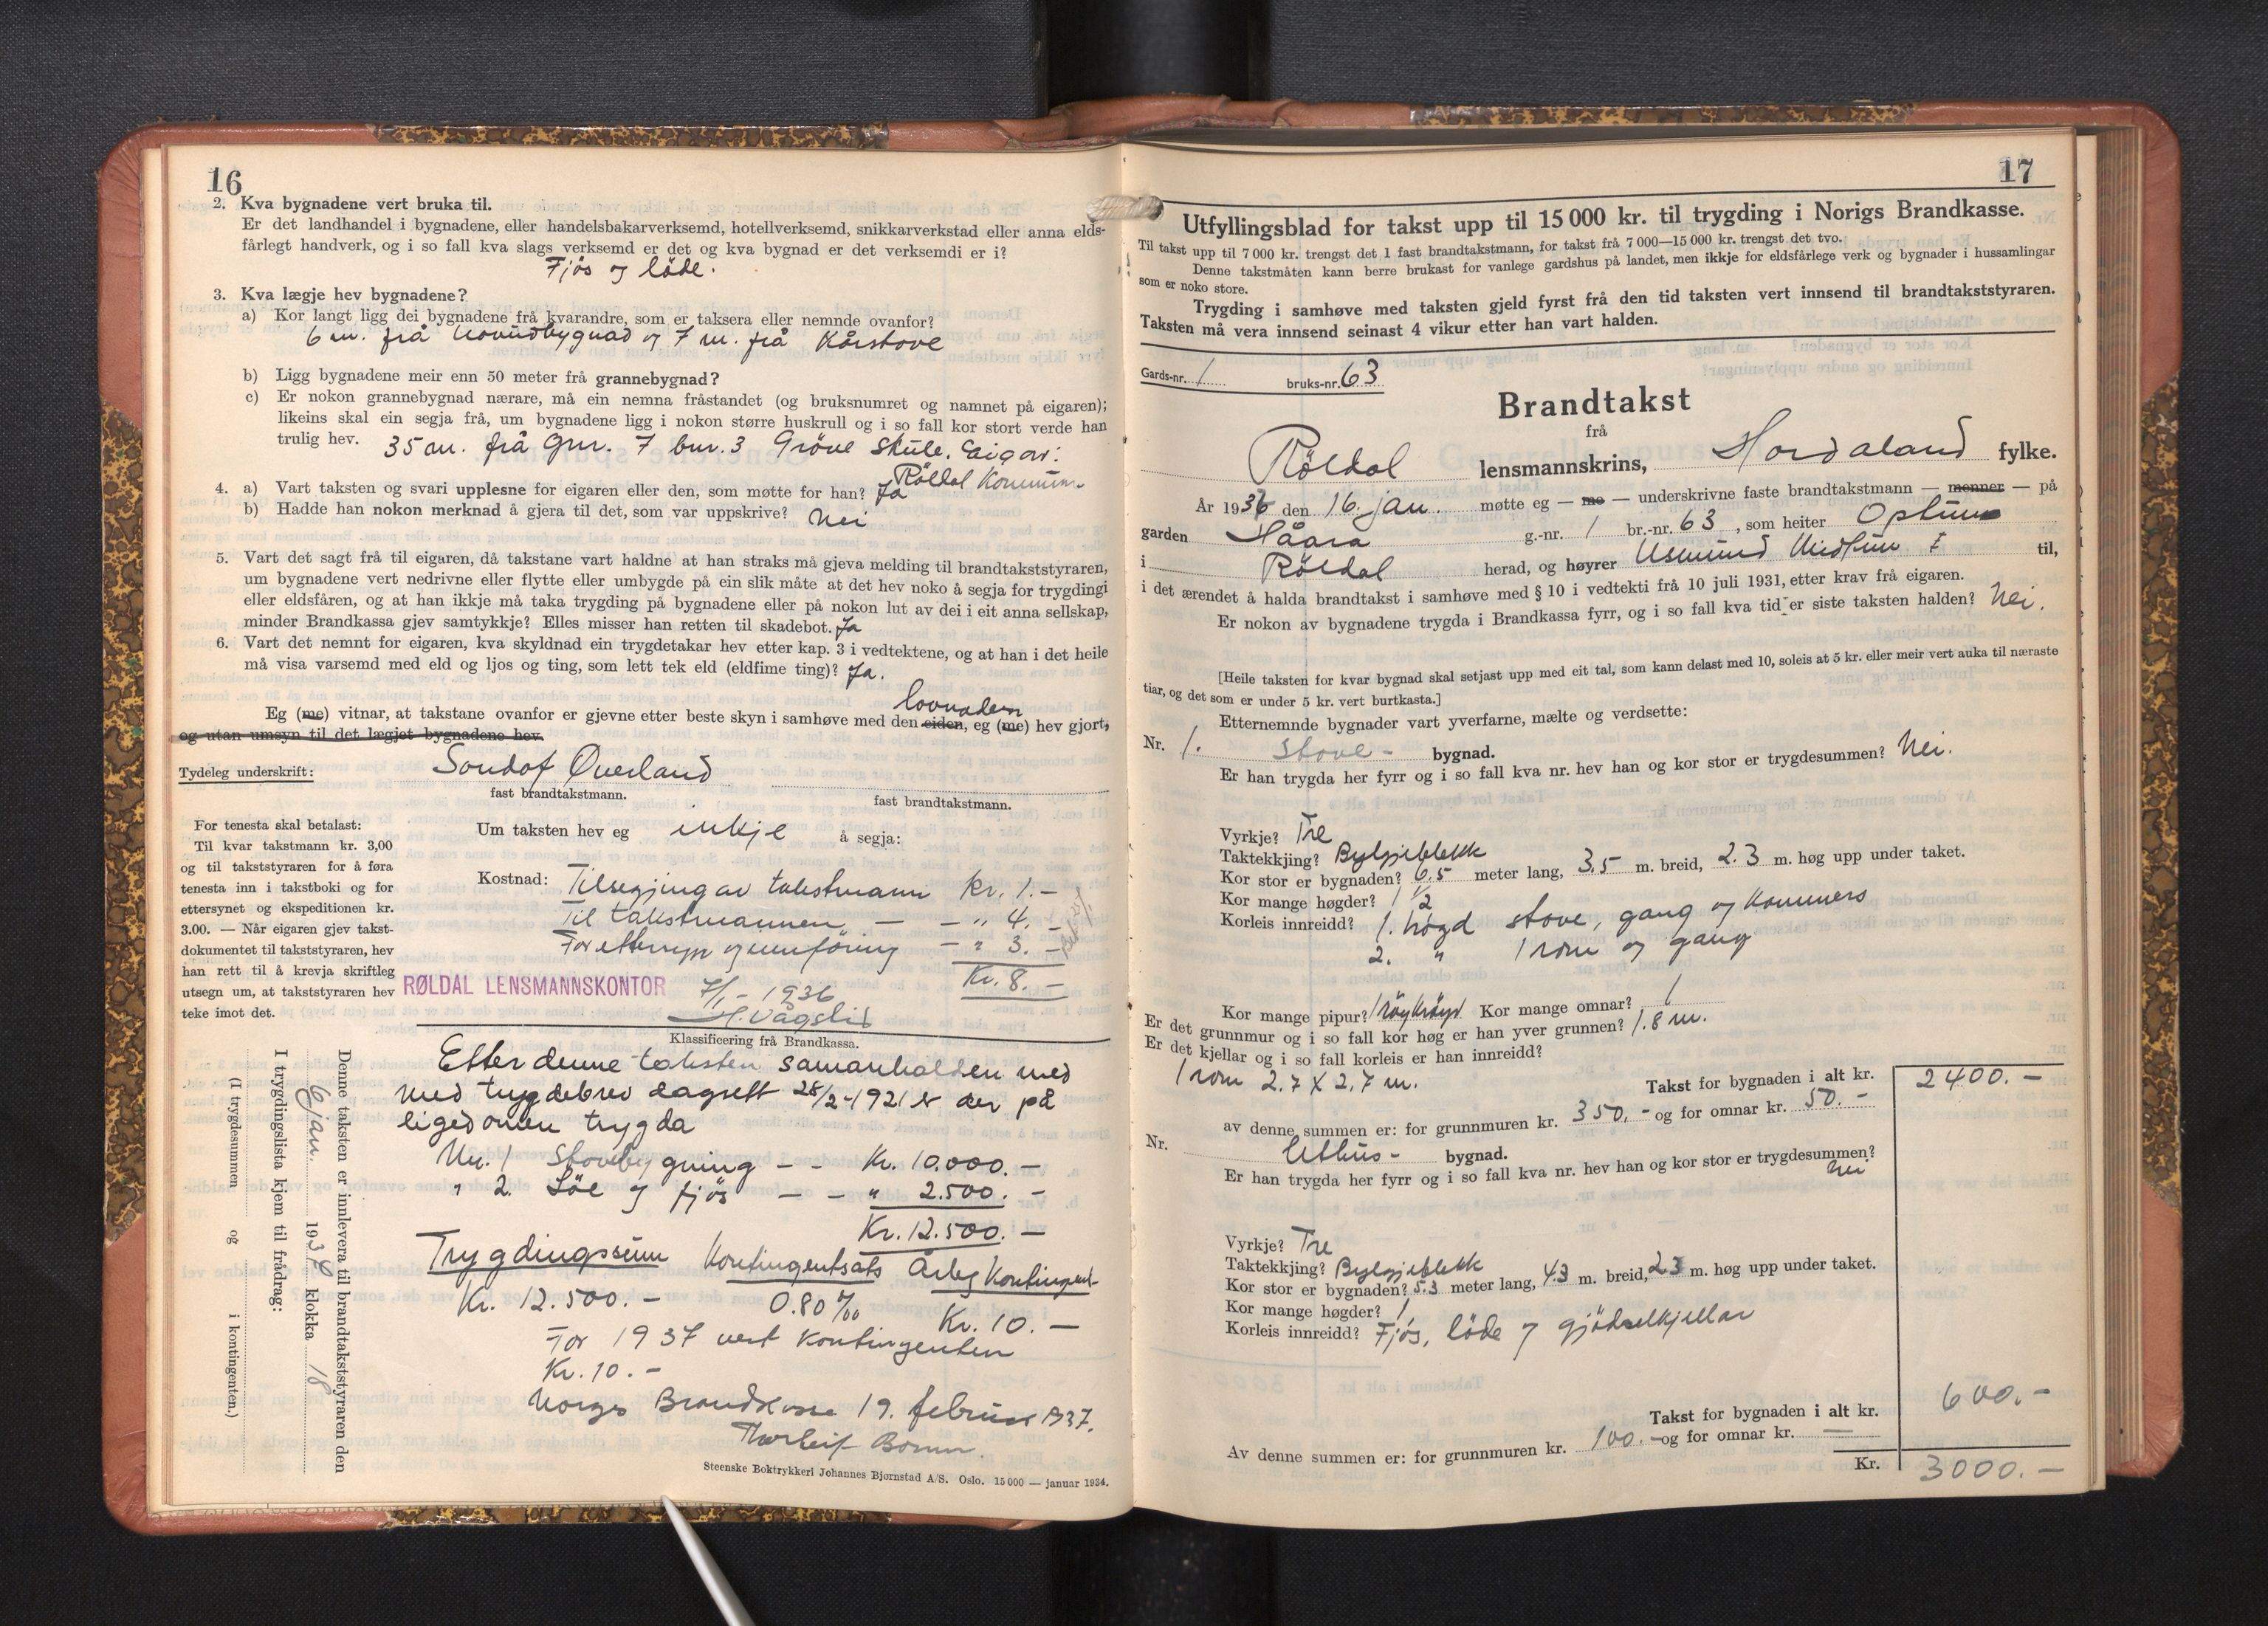 16
2. Kva bygnadene vert bruka til.
Er det landhandel i bygnadene, eller handelsbakarverksemd, hotellverksemd, snikkarverkstad eller anna elds-
fårlegt handverk, og i so fall kva slags verksemd er det og kva bygnad er det verksemdi er i?
Fjös og löde.
3. Kva lægje hev bygnadene?
a) Kor langt ligg dei bygnadene frå kvarandre, som er taksera eller nemnde ovanfor?
6 m. frå hovudbygnad og 7 m. frå Kårstove
b) Ligg bygnadene meir enn 50 meter frå grannebygnad?
c) Er nokon grannebygnad nærare, må ein nemna fråstandet (og bruksnumret og namnet på eigaren);
likeins skal ein segja frå, um bygnadene ligg i nokon større huskrull og i so fall kor stort verde han
trulig hev. 35 m. frå gnr. 7 bnr. 3 Gröve Skule. Eigar:
Röldal Kommune
4. a) Vart taksten og svari upplesne for eigaren eller den, som møtte for han? Ja
b) Hadde han nokon merknad å gjera til det, som var uppskrive? Nei
5. Vart det sagt frå til eigaren, då takstane vart haldne at han straks må gjeva melding til brandtakststyraren,
um bygnadene vert nedrivne eller flytte eller umbygde på ein slik måte at det hev noko å segja for trygdingi
eller eldsfåren, og at han ikkje må taka trygding på bygnadene eller på nokon lut av dei i eit anna sellskap,
minder Brandkassa gjev samtykkje? Elles misser han retten til skadebot. Ja
6. Vart det nemnt for eigaren, kva skyldnad ein trygdetakar hev etter kap. 3 i vedtektene, og at han i det heile
må visa varsemd med eld og ljos og ting, som lett tek eld (eldfime ting)? Ja.
lovnaden
Eg (me) vitnar, at takstane ovanfor er gjevne etter beste skyn i samhøve med den eiden, eg (me) hev gjort,
og utan umsyn til det lægjet bygnadene hev.
Tydeleg underskrift: Sondof Överland
fast brandtakstmann.
fast brandtakstmann.
For tenesta skal betalast:
Til kvar takstmann kr. 3,00
og til takststyraren for å føra
tenesta inn i takstboki og for
ettersynet og ekspeditionen kr.
3.00. — Når eigaren gjev takst-
dokumentet til takststyraren, hev
han rett til å krevja skriftleg
utsegn um, at takststyraren hev
teke imot det.
Um taksten hev eg inkje å segja:
Kostnad: Tilsegjing av takstmann Kr. 1.-
Til takstmannen — - " 4.-
For ettersyn og innföring - " 3.-
Kr. 8.-
RØLDAL LENSMANNSKONTOR 7/1 - 1936
H. Vågslid
Klassificering frå Brandkassa.
Etter denne taksten samanhalden med
med trygdebrev dagsett 28/2-1921 er der på
eigedomen trygda
Nr. 1 Stovebygning - - Kr. 10.000.-
" 2. Löe og fjös - - " 2.500.-
Kr. 12.500.-
Trygdingssum Kontingentsats Årleg Kontingent
Kr. 12.500.- 0.80 ‰ Kr. 10.-
For 1937 vert Kontingenten
Kr. 10.-
Norges Brandkasse 19. februar 1937.
Steenske Boktrykkeri Johannes Bjørnstad A/S. Oslo. 15 000 — januar 1934.
Denne taksten er innlevera til brandtakststyraren den
6 jan. 1936 klokka 18
I trygdingslista kjem til frådrag:
(I trygdesummen og i kontingenten.)
17
Utfyllingsblad for takst upp til 15 000 kr. til trygding i Norigs Brandkasse.
Til takst upp til 7 000 kr. trengst det 1 fast brandtakstmann, for takst frå 7 000—15 000 kr. trengst det tvo.
Denne takstmåten kann berre brukast for vanlege gardshus på landet, men ikkje for eldsfårlege verk og bygnader i hussamlingar
som er noko store.
Trygding i samhøve med taksten gjeld fyrst frå den tid taksten vert innsend til brandtakststyraren.
Taksten må vera innsend seinast 4 vikur etter han vart halden.
Gards-nr. 1 bruks-nr. 63
Brandtakst
frå
Röldal lensmannskrins, Hordaland fylke.
År 1936 den 16. jan. møtte eg — me — underskrivne faste brandtakstmann — menner — på
garden Håara g.-nr. 1 br.-nr. 63, som heiter Optun
i Röldal herad, og høyrer Asmund Midtun til,
i det ærendet å halda brandtakst i samhøve med § 10 i vedtekti frå 10 juli 1931, etter krav frå eigaren.
Er nokon av bygnadene trygda i Brandkassa fyrr, og i so fall kva tid er siste taksten halden? Nei.
[Heile taksten for kvar bygnad skal setjast upp med eit tal, som kann delast med 10, soleis at 5 kr. eller meir vert auka til næraste
tiar, og det som er under 5 kr. vert burtkasta.]
Etternemnde bygnader vart yverfarne, mælte og verdsette:
Nr. 1. Stove- bygnad.
Er han trygda her fyrr og i so fall kva nr. hev han og kor stor er trygdesummen? Nei.
Vyrkje? Tre
Taktekkjing? Bylgjeblekk
Kor stor er bygnaden? 6.5 meter lang, 3.5 m. breid, 2.3 m. høg upp under taket.
Kor mange høgder? 1 1/2
Korleis innreidd? 1. högd stove, gang og Kammers
2. " 1 rom og gang
Kor mange pipur? 1 röykröyr Kor mange omnar? 1
Er det grunnmur og i so fall kor høg er han yver grunnen? 1.8 m.
Er det kjellar og i so fall korleis er han innreidd?
1 rom 2.7 X 2.7 m.
Takst for bygnaden i alt kr. 2400.-
av denne summen er: for grunnmuren kr. 350.- og for omnar kr. 50.-
Nr. Uthus- bygnad.
Er han trygda her fyrr og i so fall kva nr. hev han og kor stor er trygdesummen?
Nei
Vyrkje? Tre
Taktekkjing? Bylgjeblekk
Kor stor er bygnaden? 5.3 meter lang, 4.3 m. breid, 2.3 m. høg upp under taket.
Kor mange høgder? 1
Korleis innreidd? Fjös, löde og gjödselkjellar
Takst for bygnaden i alt kr. 600.-
Av denne summen er: for grunnmuren kr. 100.- og for omnar kr. —
Kr. 3000.-